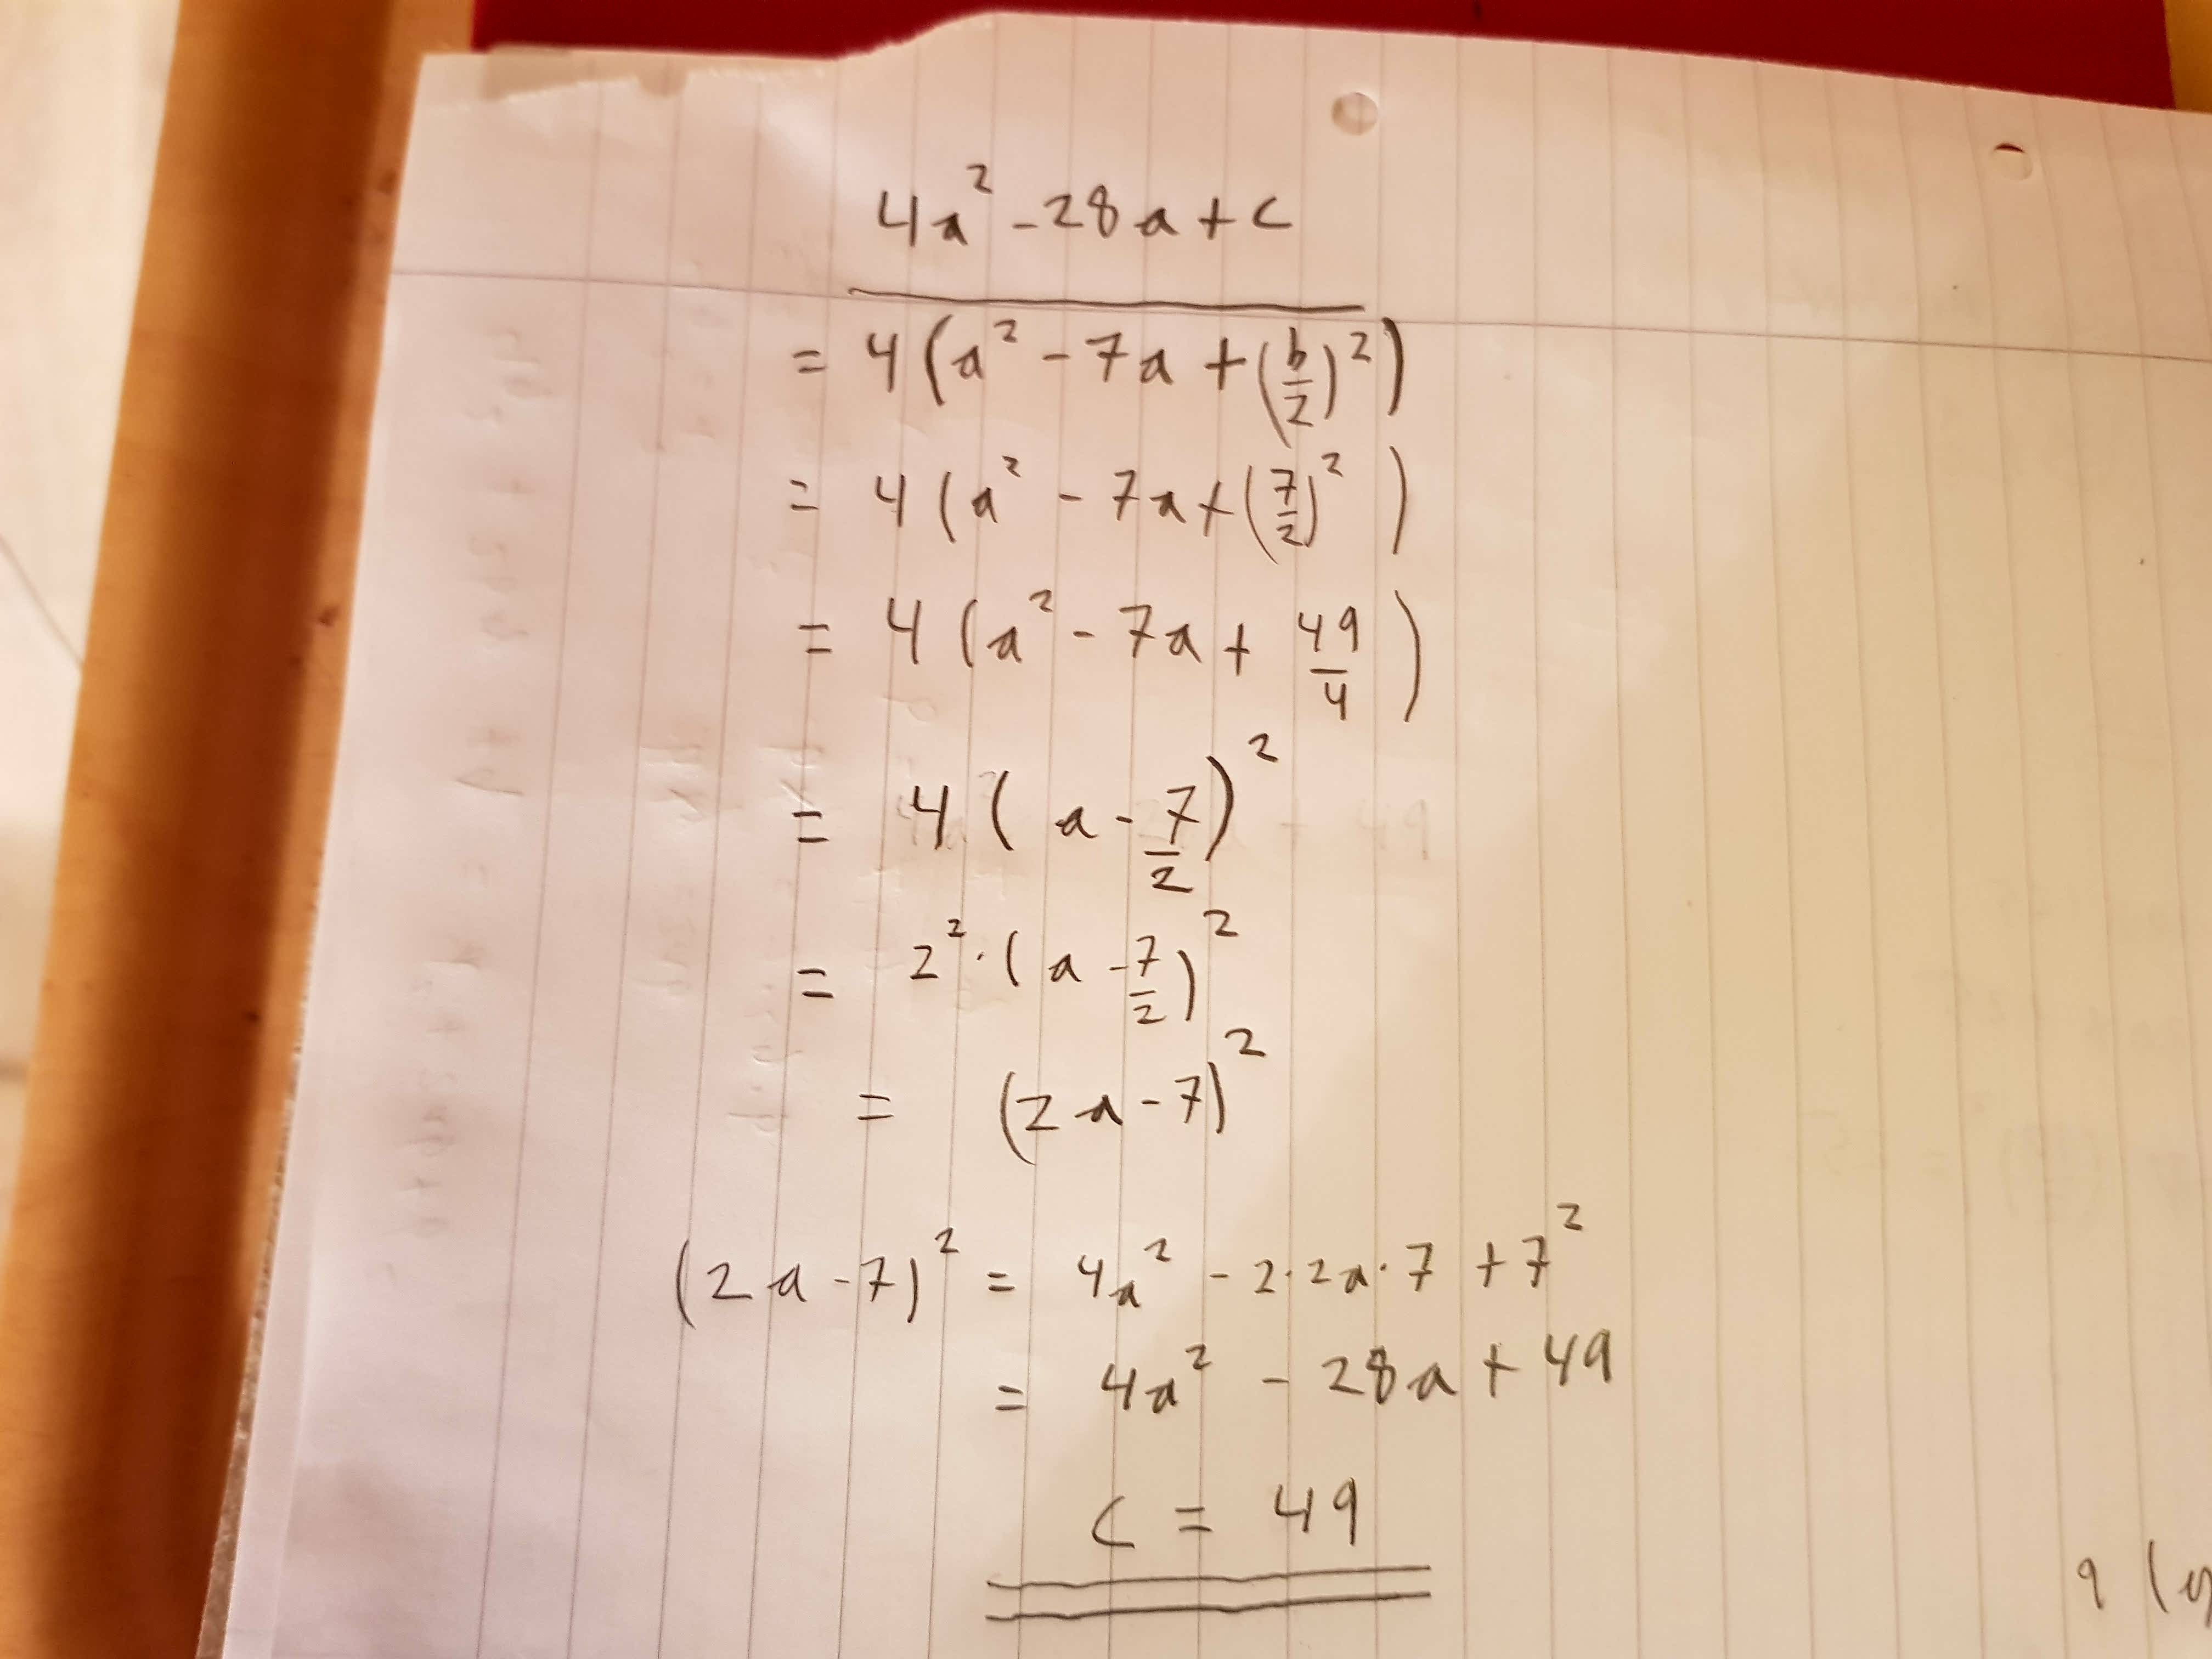 4a² - 28a + c
= 4(a² - 7a + (b/2)²)
= 4(a² - 7a + (7/2)²)
= 4(a² - 7a + 49/4)
= 4(a - 7/2)²
= 2² · (a - 7/2)²
= (2a - 7)²
(2a - 7)² = 4a² - 2·2a·7 + 7²
= 4a² - 28a + 49
c = 49